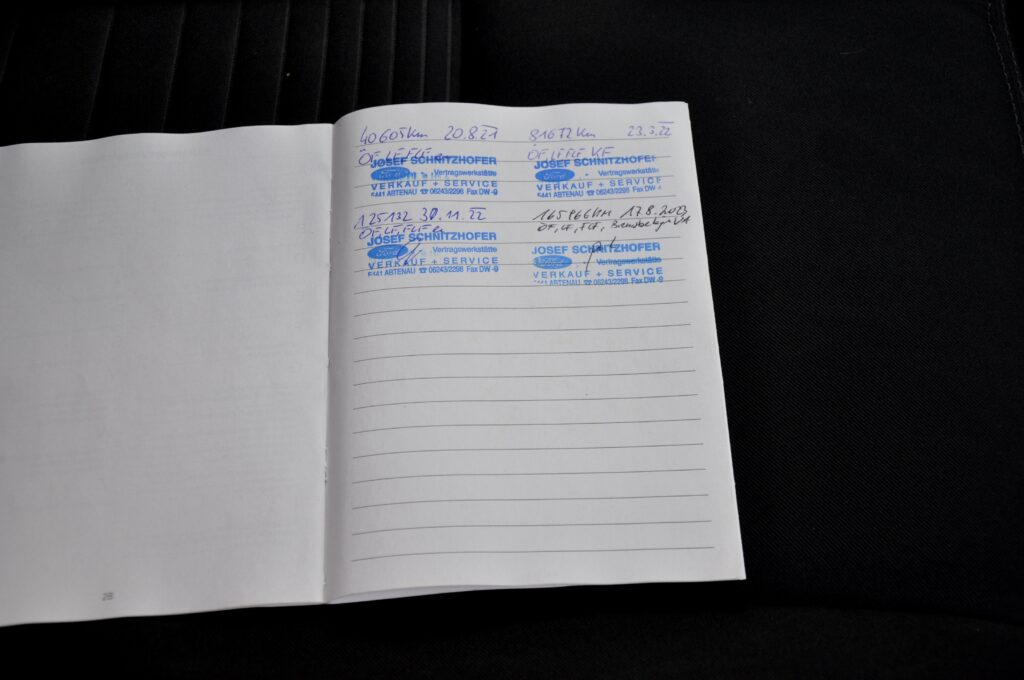 40605km 20.8.21
ÖF, LF, FLF
JOSEF SCHNITZHOFER
Ford Vertragswerkstätte
VERKAUF + SERVICE
5441 ABTENAU ☎ 06243/2298 Fax DW -9
81672km 23.3.22
ÖF, LF, FLF, KF
JOSEF SCHNITZHOFER
Ford - Vertragswerkstätte
VERKAUF + SERVICE
5441 ABTENAU ☎ 06243/2298 Fax DW
125132 30.11.22
ÖF, LF, FLF
JOSEF SCHNITZHOFER
Ford Vertragswerkstätte
VERKAUF + SERVICE
5441 ABTENAU ☎ 06243/2298 Fax DW -9
165966KM 17.8.2023
ÖF, LF, FLF, Bremsbeläge VA
JOSEF SCHNITZHOFER
Ford Vertragswerkstätte
VERKAUF + SERVICE
5441 ABTENAU ☎ 06243/2298 Fax DW -9
28